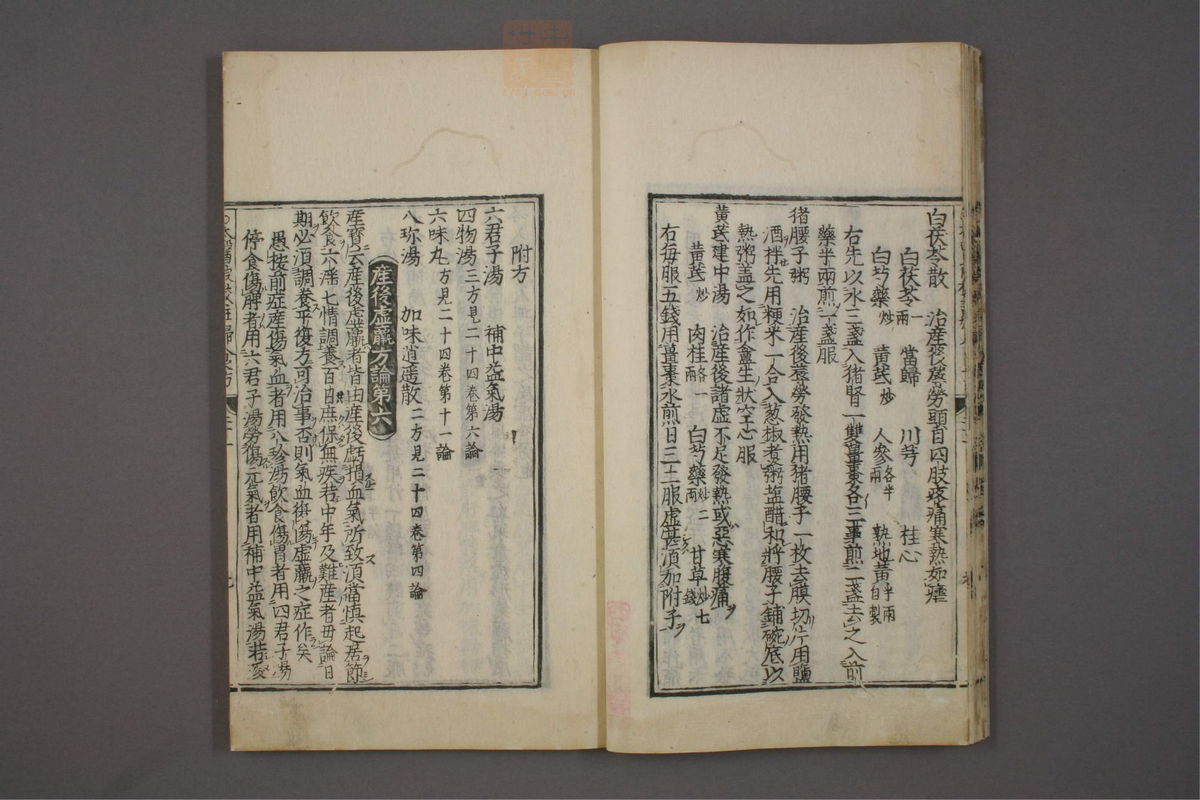 白茯苓散　治産後蓐勞頭目四肢疼痛寒熱如瘧
白茯苓一兩　當歸　川芎　桂心
白芍藥炒　黃茋炒　人參各半兩　熟地黃半兩自製
右先以水三盞入猪腎一雙薑棗各三事煎二盞去之入前
藥半兩煎一盞服
猪腰子粥　治産後蓐勞發熱用猪腰子一枚去膜切片用鹽
酒拌先用粳米一合入葱椒煮粥塩醋和將腰子鋪碗底以
熱粥盖之如作盦生狀空心服
黃茋建中湯　治産後諸虛不足發熱或惡寒腹痛
黃茋炒　肉桂各一兩　白芍藥炒二兩　甘草炒七錢
右每服五錢用薑棗水煎日三二服虛甚須加附子
附方
六君子湯　補中益氣湯
四物湯三方見二十四卷第六論
六味丸方見二十四卷第十一論
八珍湯　加味逍遥散二方見二十四卷第四論
産後虛羸方論第六
産寶云産後虛羸者皆由産後虧損血氣所致須當慎起居節
飲食六淫七情調養百日庶保無疾若中年及難産者毋論日
期必須調養平復方可治事否則氣血復傷虛羸之症作矣
愚按前症産傷氣血者用八珍湯飲食傷胃者用四君子湯
停食傷脾者用六君子湯勞傷元氣者用補中益氣湯若